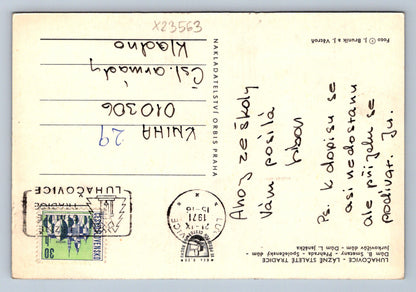 x23563
Foto J. Bruník a J. Věžník
NAKLADATELSTVÍ ORBIS PRAHA
Ahoj ze školy
Vám posílá
Ps. k dopisu se
asi nedostanu
ale přijedu se
podívat. Ju.
KNIHA
29
010306
Čsl. armády
Kladno
LUHAČOVICE
TRADICE
ČESKOSLOVENSKO
30
21.IX.
1971
15-16
LUHAČOVICE - LÁZNĚ STALETÉ TRADICE
Dům B. Smetany - Přehrada - Společenský dům -
Jurkovičův dům - Dům L. Janáčka